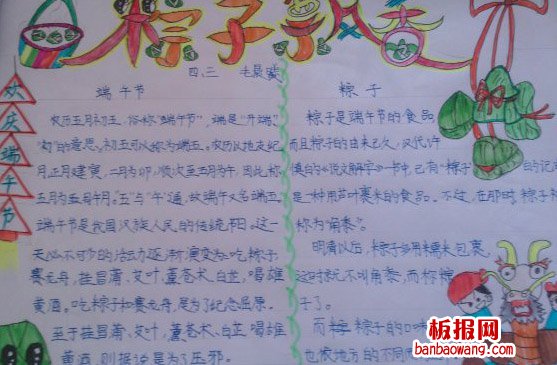 粽子飘香
四、三
欢庆端午节
端午节
农历五月初五,俗称"端午节",端是"开端"、
"初"的意思。初五可以称为端五。农历以地支纪
月,正月建寅,二月为卯,顺次至五月为午,因此称
五月为午月,"五"与"午"通,
端午节是我国汉族人民的传统节日。这一
天必不可少的活动逐渐演变为:吃粽子,
赛龙舟,挂菖蒲、艾叶,薰苍术、白芷,喝雄
黄酒。吃粽子和赛龙舟,是为了纪念屈原
至于挂菖蒲、艾叶,薰苍术、白芷,喝雄
黄酒,则据说是为了压邪。
粽子
粽子是端午节的食品
而且粽子的由来已久,汉代许
慎的《说文解字》一书中,已有"粽子
是一种用芦叶裹米的食品。不过,在那时,粽子
称为"角黍"。
明清以后,粽子多用糯米包裹,
这时就不叫角黍,而称粽
子了。
而 粽子的口味
也依地方的不同
板报网
banbaowang.com